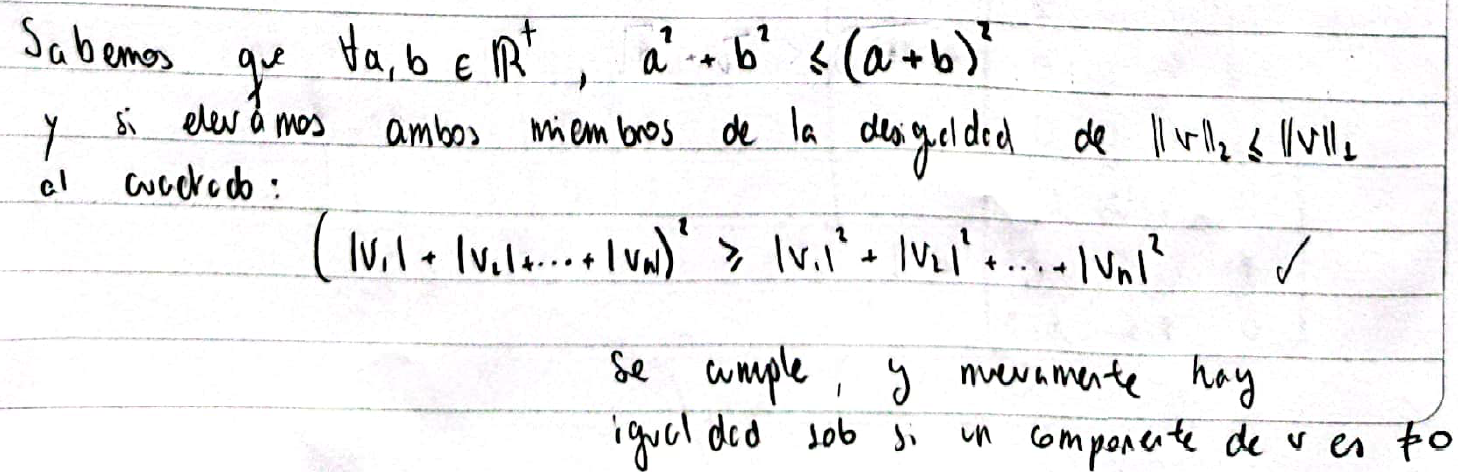 Sabemos que ∀a, b ∈ ℝ⁺, a² + b² ≤ (a + b)²
y si elevámos ambos miembros de la desigualdad de ||v||₂ ≤ ||v||₁
al cuadrado:
(|v₁| + |v₂| + .... + |vₙ|)² ≥ |v₁|² + |v₂|² + .... + |vₙ|² ✓
Se cumple, y nuevamente hay
igualdad solo si un componente de v es ≠0